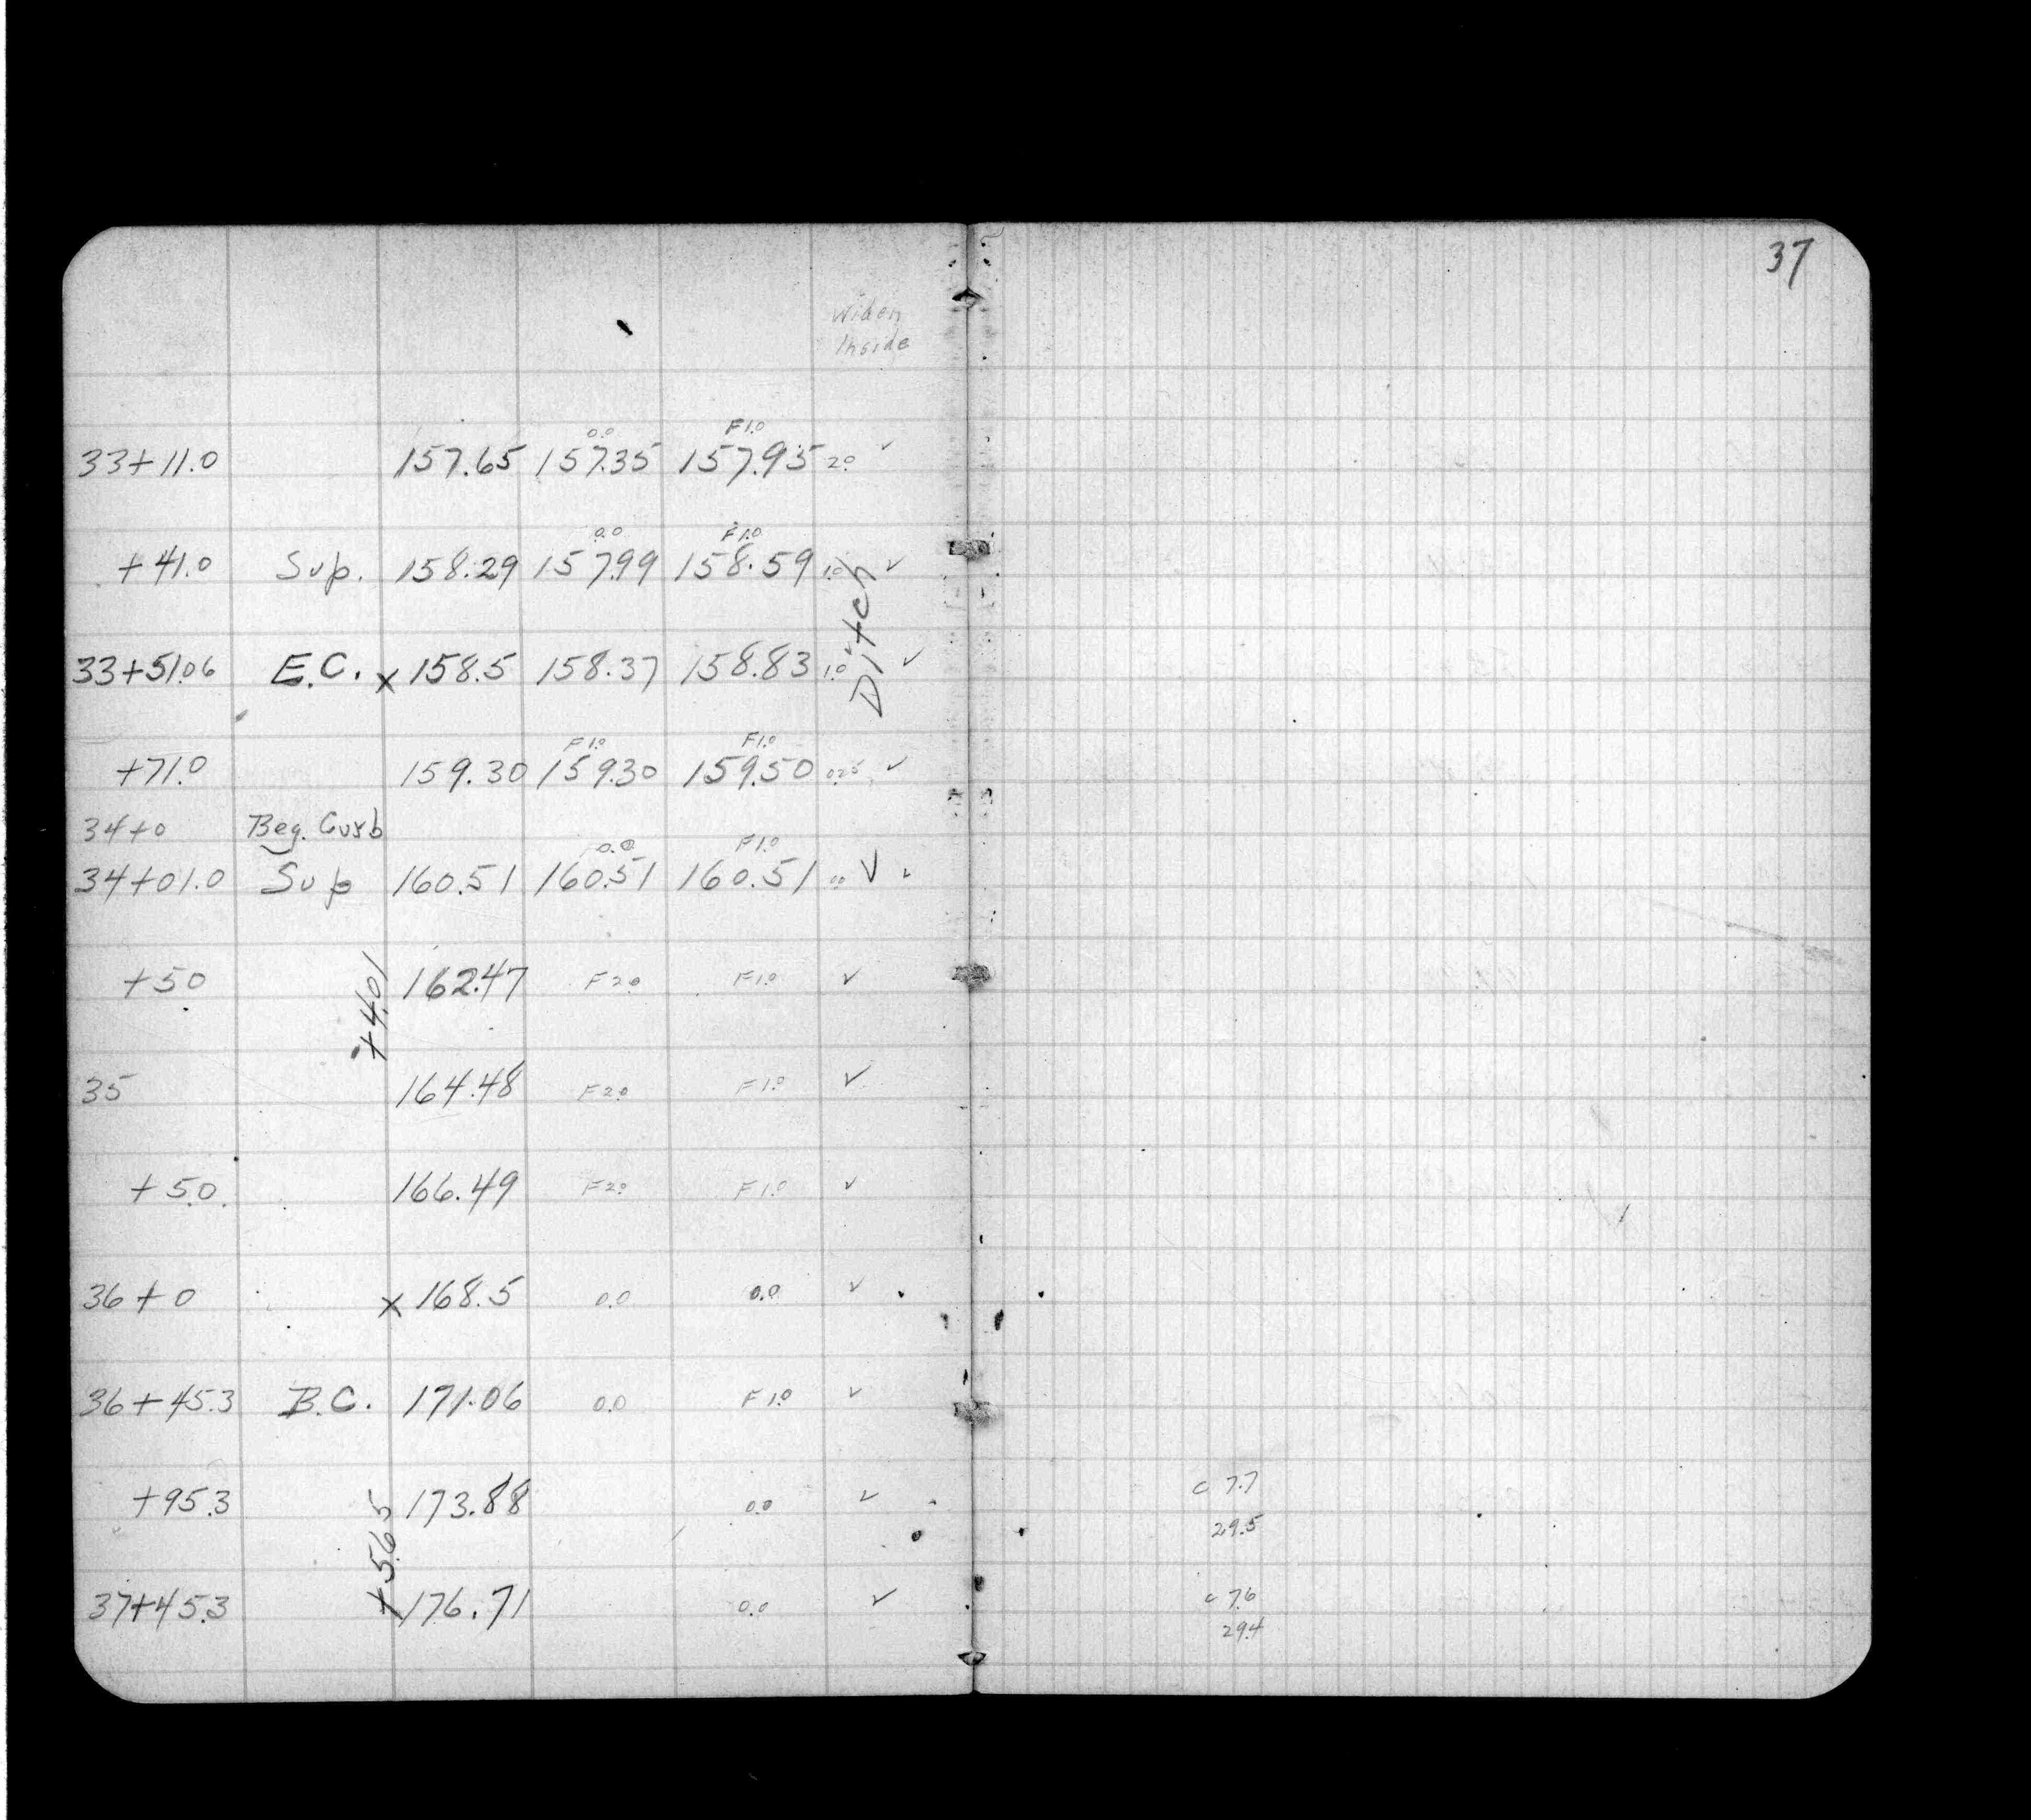 37
Widen
Inside
0.0 F1.0
33+11.0 157.65 157.35 157.95 2.0 ✓
0.0 F1.0
+41.0 Sup. 158.29 157.99 158.59 1.0 ✓
Ditch
33+51.06 E.C. x 158.5 158.37 158.83 1.0 ✓
F1.0 F1.0
+71.0 159.30 159.30 159.50 0.25 ✓
34+0 Beg. Curb
0.0 F1.0
34+01.0 Sup 160.51 160.51 160.51 0.0 ✓ ✓
+50 162.47 F2.0 F1.0 ✓
+4.01
35 164.48 F2.0 F1.0 ✓
+50. 166.49 F2.0 F1.0 ✓
36+0 x 168.5 0.0 0.0 ✓
36+45.3 B.C. 171.06 0.0 F1.0 ✓
+95.3 173.88 0.0 ✓ c 7.7
29.5
+5.65
37+45.3 176.71 0.0 ✓ c 7.6
29.4